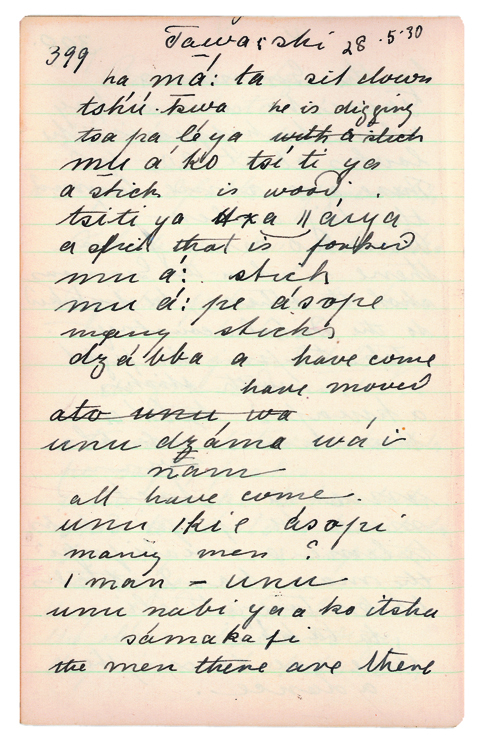 399 Tawaʂski 28.5.30
ha má: ta sit down
tshú.tswa he is digging
tsa pa lé ya with a stick
mu á ko tsí ti ya
a stick is wood.
tsiti ya ǁxa ǁáiya
a stick that is forked
mu á: stick
mu á: pe ásope
many sticks
dzá bba a have come
have moved
ato unu wa
unu dzáma wá i
nam
all have come.
unu ikie ásopi
many men ?
1 man - unu
unu nabi ya a ko itsha
sámakati
the men there are there